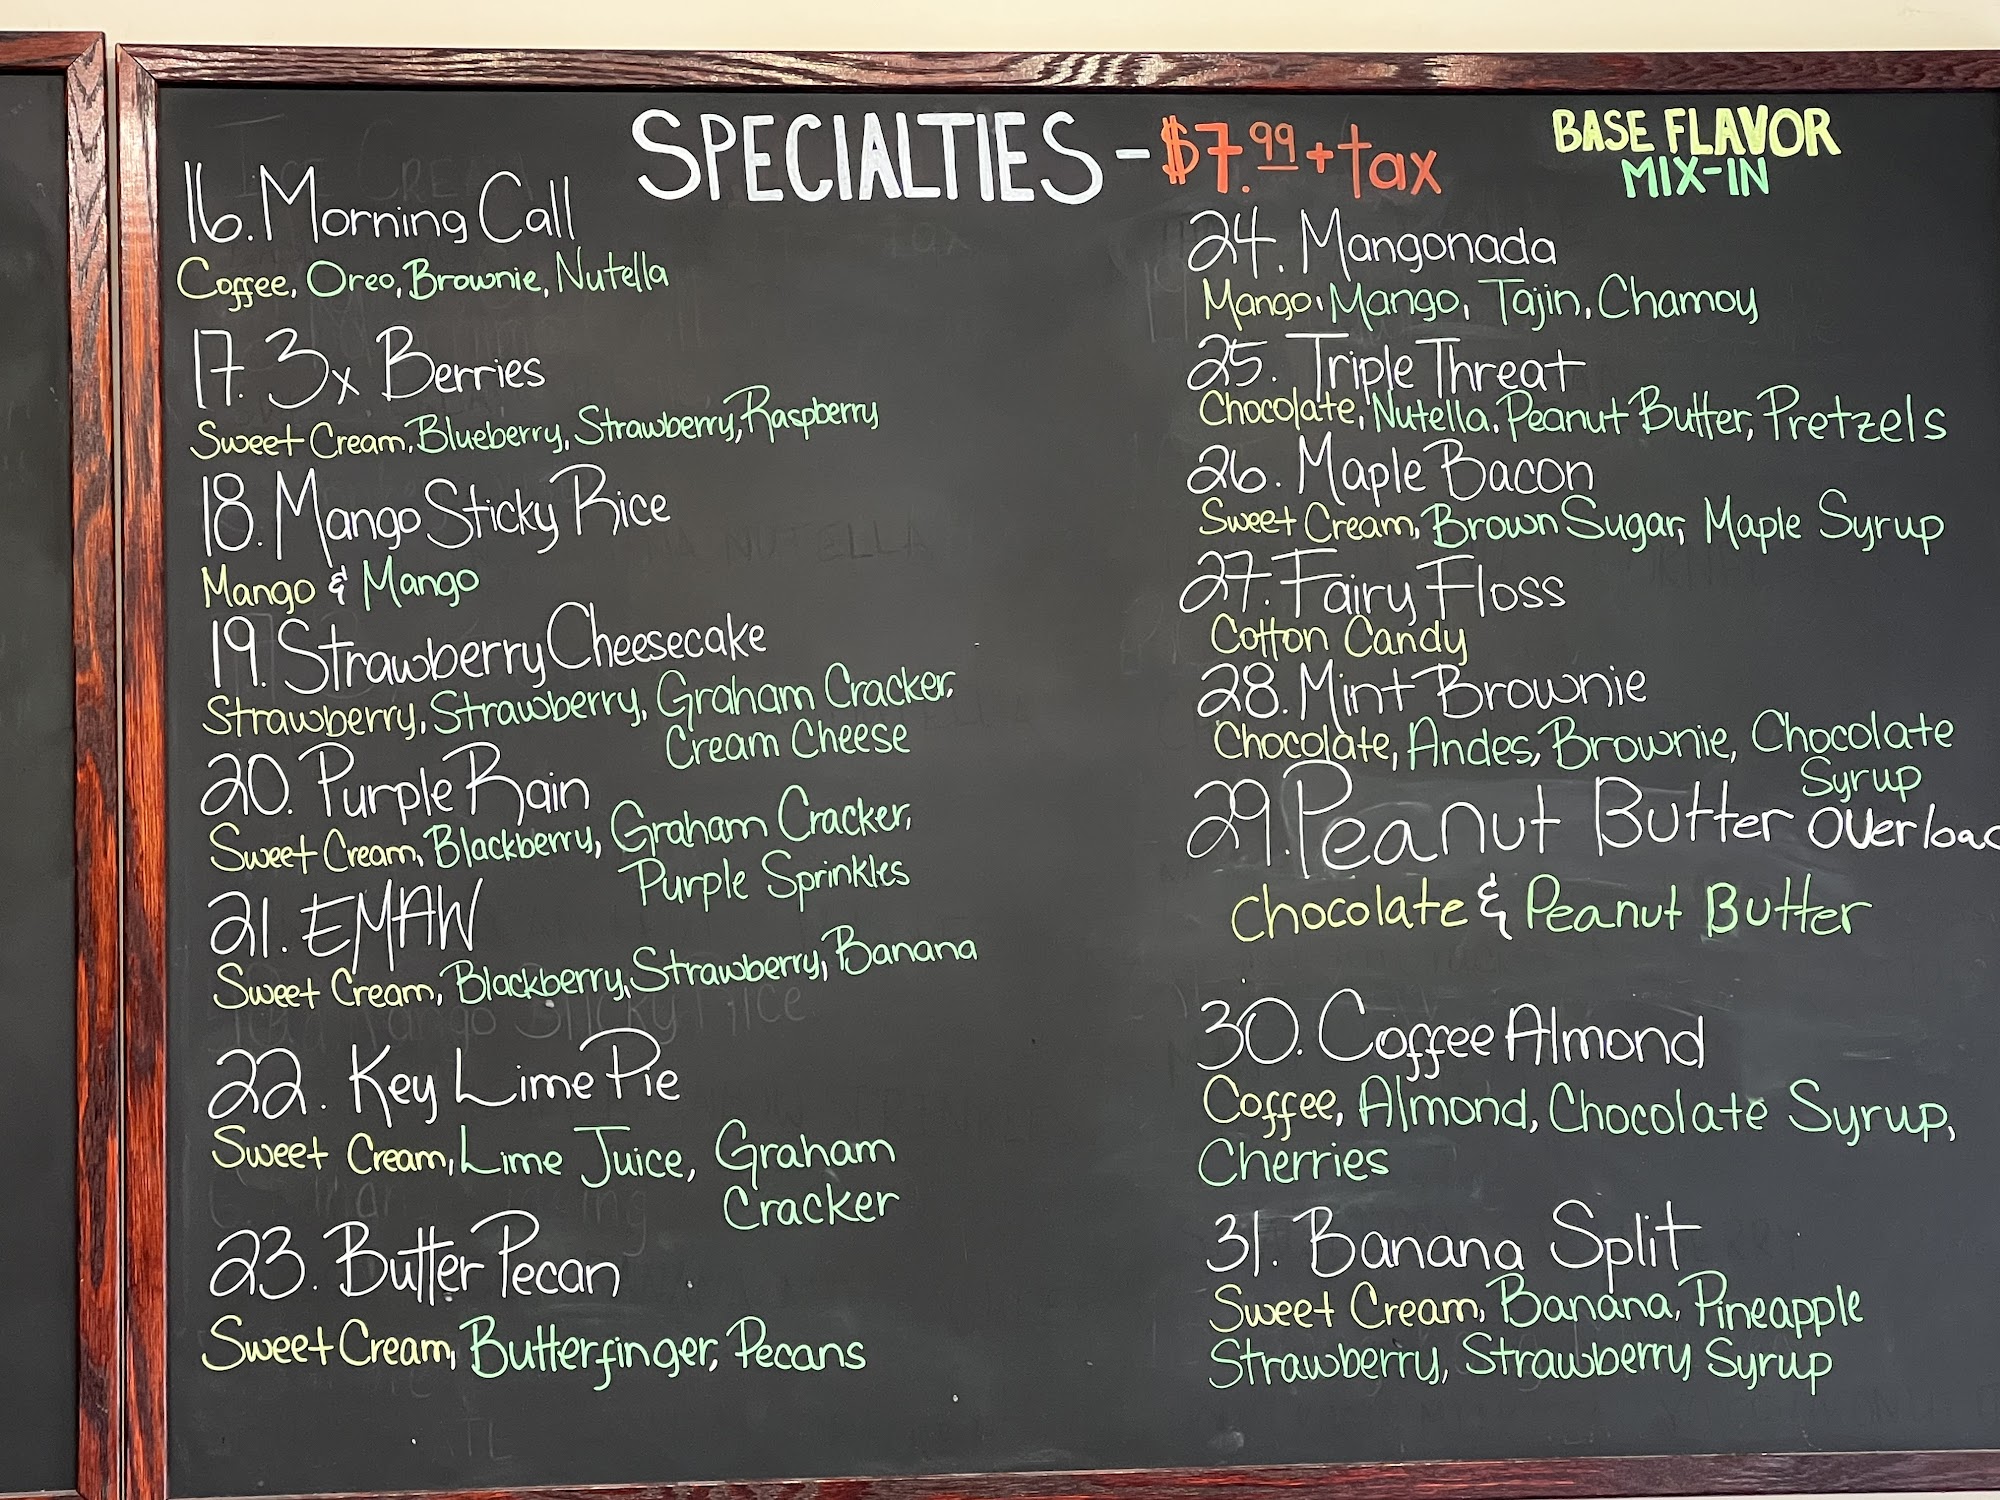 SPECIALTIES - $7.99 + tax
BASE FLAVOR
MIX-IN
16. Morning Call
Coffee, Oreo, Brownie, Nutella
17. 3x Berries
Sweet Cream, Blueberry, Strawberry, Raspberry
18. Mango Sticky Rice
Mango & Mango
19. Strawberry Cheesecake
Strawberry, Strawberry, Graham Cracker,
Cream Cheese
20. Purple Rain
Sweet Cream, Blackberry, Graham Cracker,
Purple Sprinkles
21. EMAW
Sweet Cream, Blackberry, Strawberry, Banana
22. Key Lime Pie
Sweet Cream, Lime Juice, Graham
Cracker
23. Butter Pecan
Sweet Cream, Butterfinger, Pecans
24. Mangonada
Mango, Mango, Tajin, Chamoy
25. Triple Threat
Chocolate, Nutella, Peanut Butter, Pretzels
26. Maple Bacon
Sweet Cream, Brown Sugar, Maple Syrup
27. Fairy Floss
Cotton Candy
28. Mint Brownie
Chocolate, Andes, Brownie, Chocolate
Syrup
29. Peanut Butter Overloa
Chocolate & Peanut Butter
30. Coffee Almond
Coffee, Almond, Chocolate Syrup,
Cherries
31. Banana Split
Sweet Cream, Banana, Pineapple
Strawberry, Strawberry Syrup